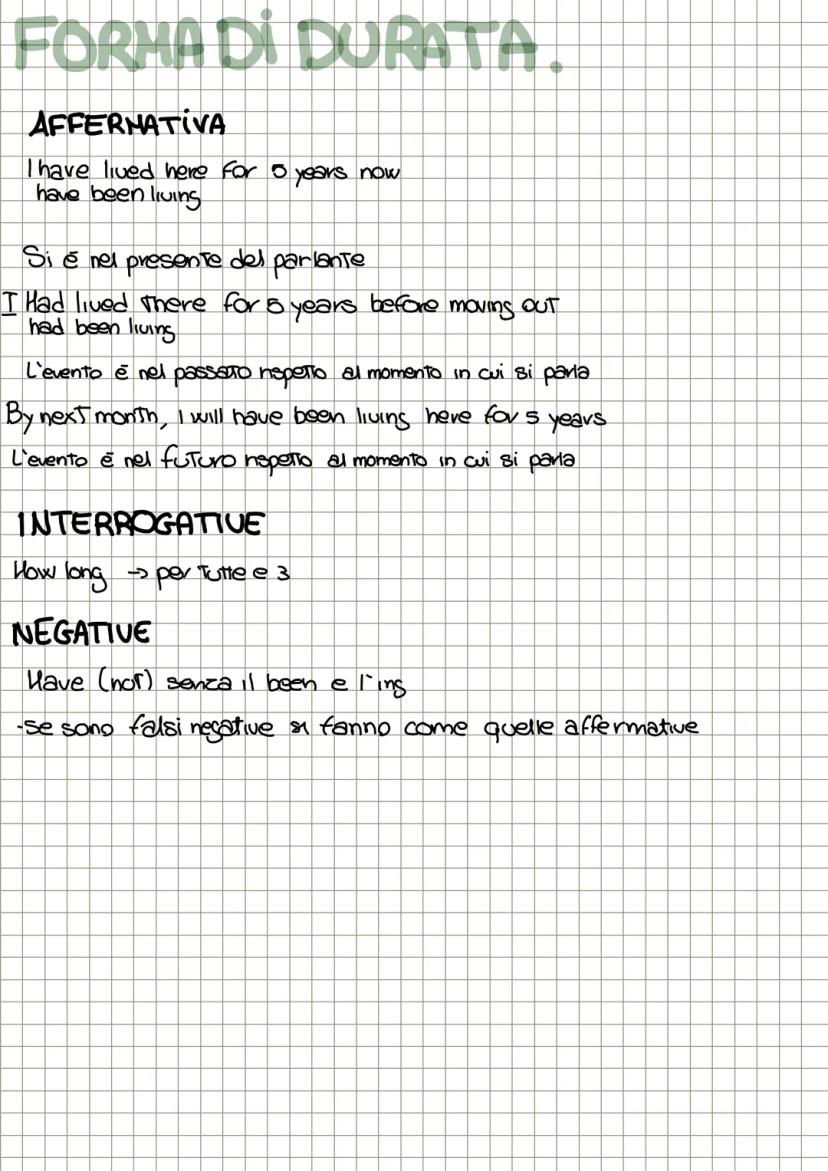 FORMA Di DURATA.
AFFERMATiVA
I have lived here for 5 years now
have been living
Si è nel presente del parlante
I Had lived there for 5 years before moving out
had been living
L'evento è nel passato rispetto al momento in cui si parla
By next month, I will have been living here for 5 years
L'evento è nel futuro rispetto al momento in cui si parla
INTERROGATIVE
How long → per tutte e 3
NEGATIVE
Have (not) senza il been e l'ing
-se sono falsi negative si fanno come quelle affermative